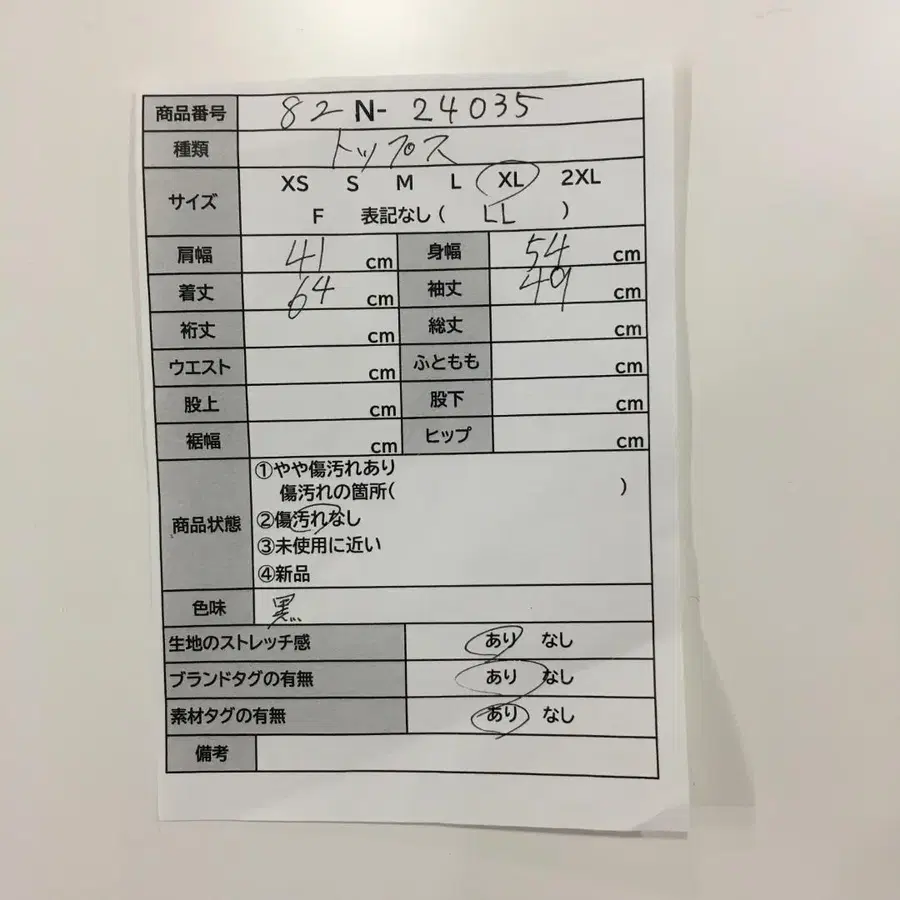 商品番号 82 N- 24035
種類 トップス
サイズ XS S M L XL 2XL
F 表記なし ( LL )
肩幅 41 cm 身幅 54 cm
着丈 64 cm 袖丈 49 cm
裄丈 cm 総丈 cm
ウエスト cm ふともも cm
股上 cm 股下 cm
裾幅 cm ヒップ cm
商品状態 ①やや傷汚れあり
傷汚れの箇所( )
②傷汚れなし
③未使用に近い
④新品
色味 黒
生地のストレッチ感 あり なし
ブランドタグの有無 あり なし
素材タグの有無 あり なし
備考